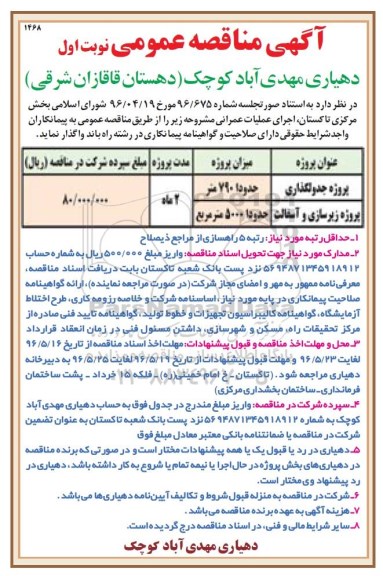 ۱۴۶۸
آگهی مناقصه عمومی نوبت اول
دهیاری مهدی‌آباد کوچک (دهستان قاقازان شرقی)
در نظر دارد به استناد صورتجلسه شماره ۹۶/۶۷۵ مورخ ۹۶/۰۴/۱۹ شورای اسلامی بخش
مرکزی تاکستان، اجرای عملیات عمرانی مشروحه زیر را از طریق مناقصه عمومی به پیمانکاران
واجد شرایط حقوقی دارای صلاحیت و گواهینامه پیمانکاری در رشته راه باند واگذار نماید.
عنوان پروژه میزان پروژه مدت پروژه مبلغ سپرده شرکت در مناقصه (ریال)
پروژه جدولگذاری حدودا ۷۹۰ متر ۲ ماه ۸۰/۰۰۰/۰۰۰
پروژه زیرسازی و آسفالت حدودا ۵۰۰۰ مترمربع
۱- حداقل رتبه مورد نیاز: رتبه ۵ راهسازی از مراجع ذیصلاح
۲- مدارک مورد نیاز جهت تحویل اسناد مناقصه: واریز مبلغ ۵۰۰/۰۰۰ ریال به شماره حساب
۵۶۹۴۸۷۱۳۴۵۹۱۸۹۱۲ نزد پست بانک شعبه تاکستان بابت دریافت اسناد مناقصه،
معرفی‌نامه ممهور به مهر و امضای مجاز شرکت (در صورت مراجعه نماینده)، ارائه گواهینامه
صلاحیت پیمانکاری در پایه مورد نیاز، اساسنامه شرکت و خلاصه رزومه کاری، طرح اختلاط
آزمایشگاه، گواهینامه کالیبراسیون تجهیزات و خطوط تولید، گواهینامه تایید فنی صادره از
مرکز تحقیقات راه، مسکن و شهرسازی، داشتن مسئول فنی در زمان انعقاد قرارداد
۳- محل و مهلت اخذ مناقصه و قبول پیشنهادات: مهلت اخذ اسناد مناقصه از تاریخ ۹۶/۵/۱۶
لغایت ۹۶/۵/۲۳ و مهلت قبول پیشنهادات از تاریخ ۹۶/۵/۱۹ لغایت ۹۶/۵/۲۵ به دبیرخانه
دهیاری مراجعه شود. (تاکستان - خ امام خمینی(ره) - فلکه ۱۵ خرداد - پشت ساختمان
فرمانداری - ساختمان بخشداری مرکزی)
۴- سپرده شرکت در مناقصه: واریز مبلغ مندرج در جدول فوق به حساب دهیاری مهدی آباد
کوچک به شماره ۵۶۹۴۸۷۱۳۴۵۹۱۸۹۱۲ نزد پست بانک شعبه تاکستان به عنوان تضمین
شرکت در مناقصه یا ضمانتنامه بانکی معتبر معادل مبلغ فوق
۵- دهیاری در رد یا قبول یک یا همه پیشنهادات مختار است و در صورتی که برنده مناقصه
در دهیاری‌های بخش پروژه در حال اجرا یا نیمه تمام یا شروع به کار داشته باشد، دهیاری در
رد پیشنهاد وی مختار است.
۶- شرکت در مناقصه به منزله قبول شروط و تکالیف آیین‌نامه دهیاری‌ها می‌باشد.
۷- هزینه آگهی به عهده برنده مناقصه می‌باشد.
۸- سایر شرایط مالی و فنی، در اسناد مناقصه درج گردیده است.
دهیاری مهدی آباد کوچک